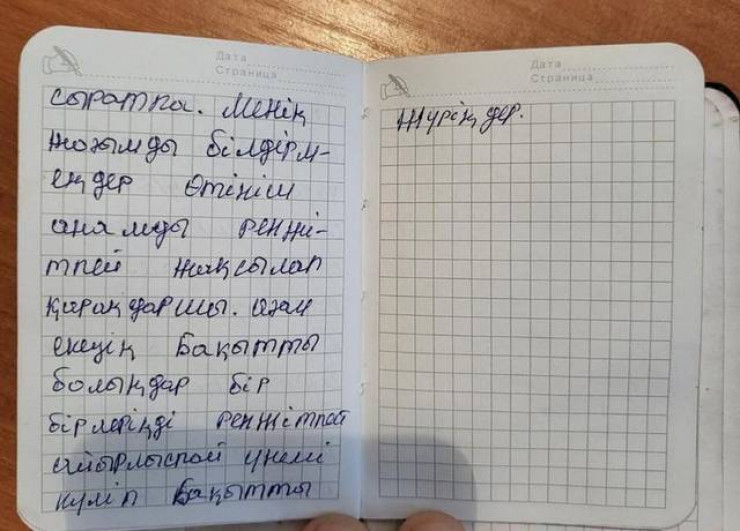 Дата
Страница
сыратпа. Менің
жоғымды білдірм-
еңдер Өтініш
анамды ренжі-
тпей жақсылап
қараңдаршы. ағам
екеуің Бақытты
болыңдар бір
бірлеріңді ренжітпей
айырлыспай үнемі
күліп Бақытты
Дата
Страница
Жүріңдер.